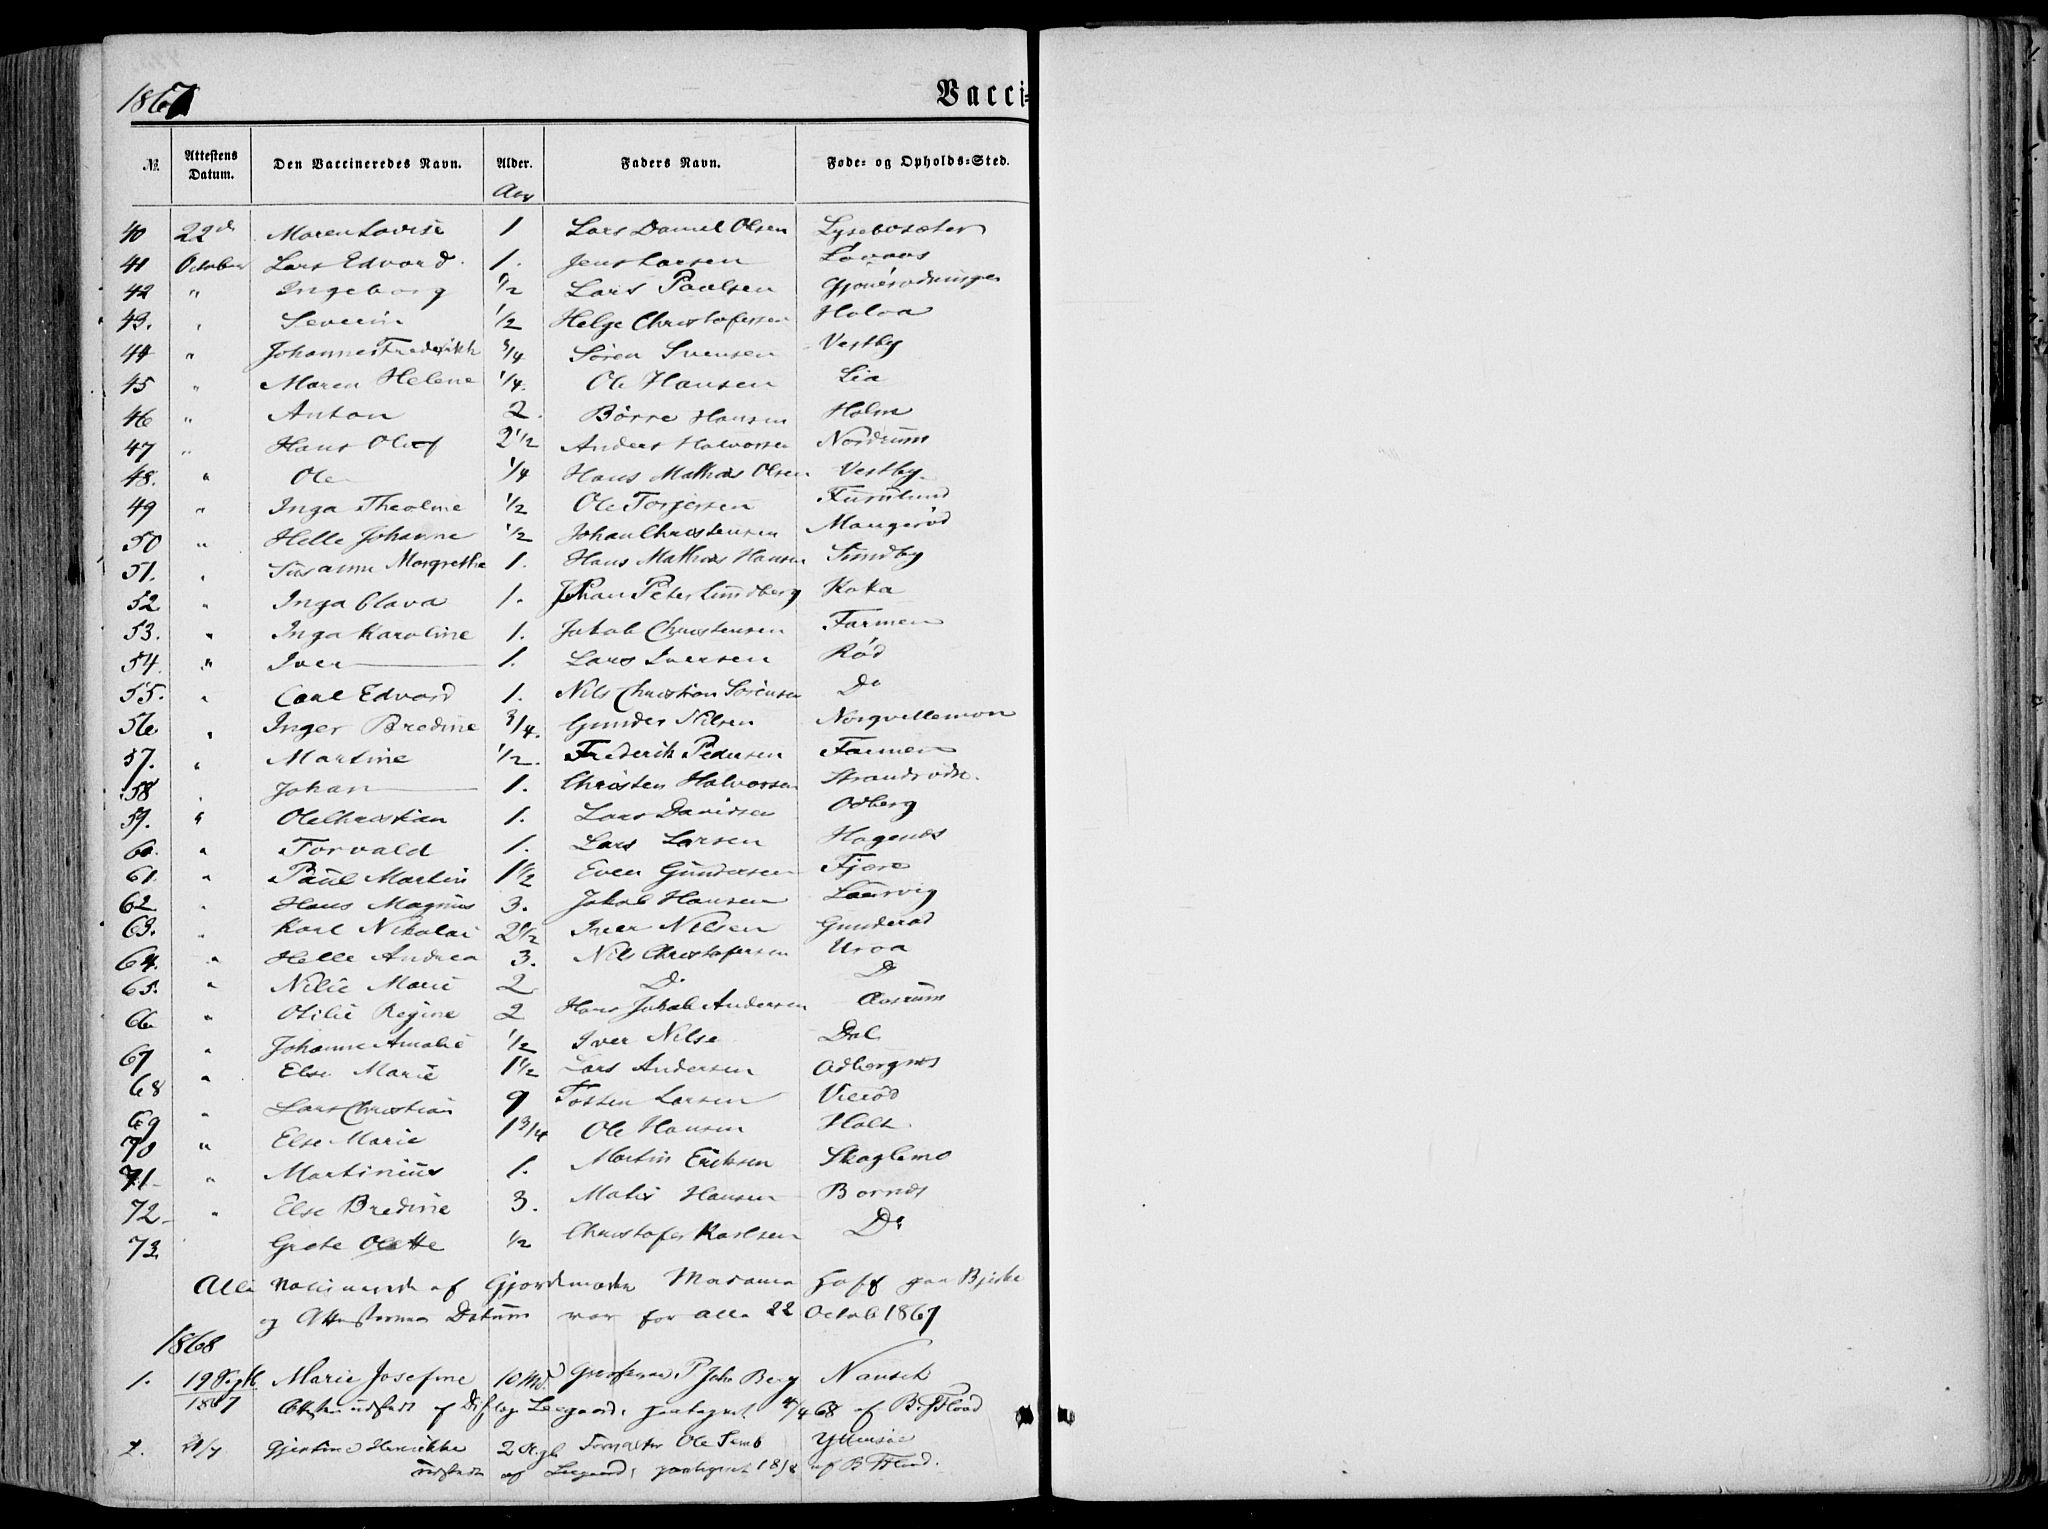 1867
Vacci=
№ Attestens Datum. Den Vaccineredes Navn. Alder. Faders Navn. Føde- og Opholds-Sted.
Aar
40 22de Maren Lovise 1 Lars Daniel Olsen Lysebosæter
41 October Lars Edvard. 1. Jens Larsen
42 " Ingeborg 1/2 Lars Paulsen
43. " Severin 1/2 Helge Christofersen Holoa
44 " Johannes Frederikk 3/4 Søren Svensen Vestby
45 " Maren Helene 1/4. Ole Hansen Lia
46 " Anton 2. Børre Hansen Holm
47 " Hans Oluf 2 1/2 Anders Halvorsen Nordrum
48. " Ole 1/4 Hans Mathias Olsen Vestby
49 " Inga Theoline 1/2 Ole Torgersen Furulund
50 " Helle Johanne 1/2 Johan Christensen Maugerød
51. " Susanne Margrethe 1. Hans Mathias Hansen Sundby
52 " Inga Clava 1. Johan Peter Lundberg Kaka
53. " Inga Karoline 1. Jakob Christensen Farmen
54. " Iver 1. Lars Iversen Rød
55. " Carl Edvard 1. Nils Christian Sørensen Do
56 " Inger Bredine 3/4. Gunder Nilsen
57. " Martine 1/2. Frederik Pedersen Farmen
58 " Johan 1. Christen Halvorsen
59. " Ole Christian 1. Lars Davidsen Odberg
60. " Torvald 1. Lars Larsen Hagenæs
61. " Paul Martin 1 1/2 Even Gundersen Fjære
62 " Hans Magnus 3. Jakob Hansen Laurvig
63. " Karl Nikolai 2 1/2 Iver Nilsen Gunderød
64. " Helle Andrea 3. Nils Christofersen Uroa
65. " Nilie Marie 2 Do Do
66 " Otilie Regine 2 Hans Jakob Andersen Aasrum
67 " Johanne Amalie 1/2 Iver Nilse Dal
68 " Else Marie 1 1/2 Lars Andersen Odbergnes
69 " Lars Christian 9 Tosten Larsen Vierød
70 " Else Marie 1 3/4 Ole Hansen Holt
71 " Martinius 1. Martin Eriksen Skoglemo
72 " Else Bredine 3. Matis Hansen Bornæs
73. Grete Olette 1/2 Christofer Karlsen Do
Alle vaccinerede af Gjordmoder Madame Hoff paa Bjerke
og Attesternes Datum var for alle 22 Octob 1867
1868
1. 19 Septb 1867 Marie Josefine 10 Md. P. Joh Berg
Attesten udstedt af Distlæge Leegaard. paategnet 4/4 68 af B. Flood
2. Gjertine Henrikke 2 Forvalter Ole Semb
udstedt af Leegaard, paategnet af B. Flood.